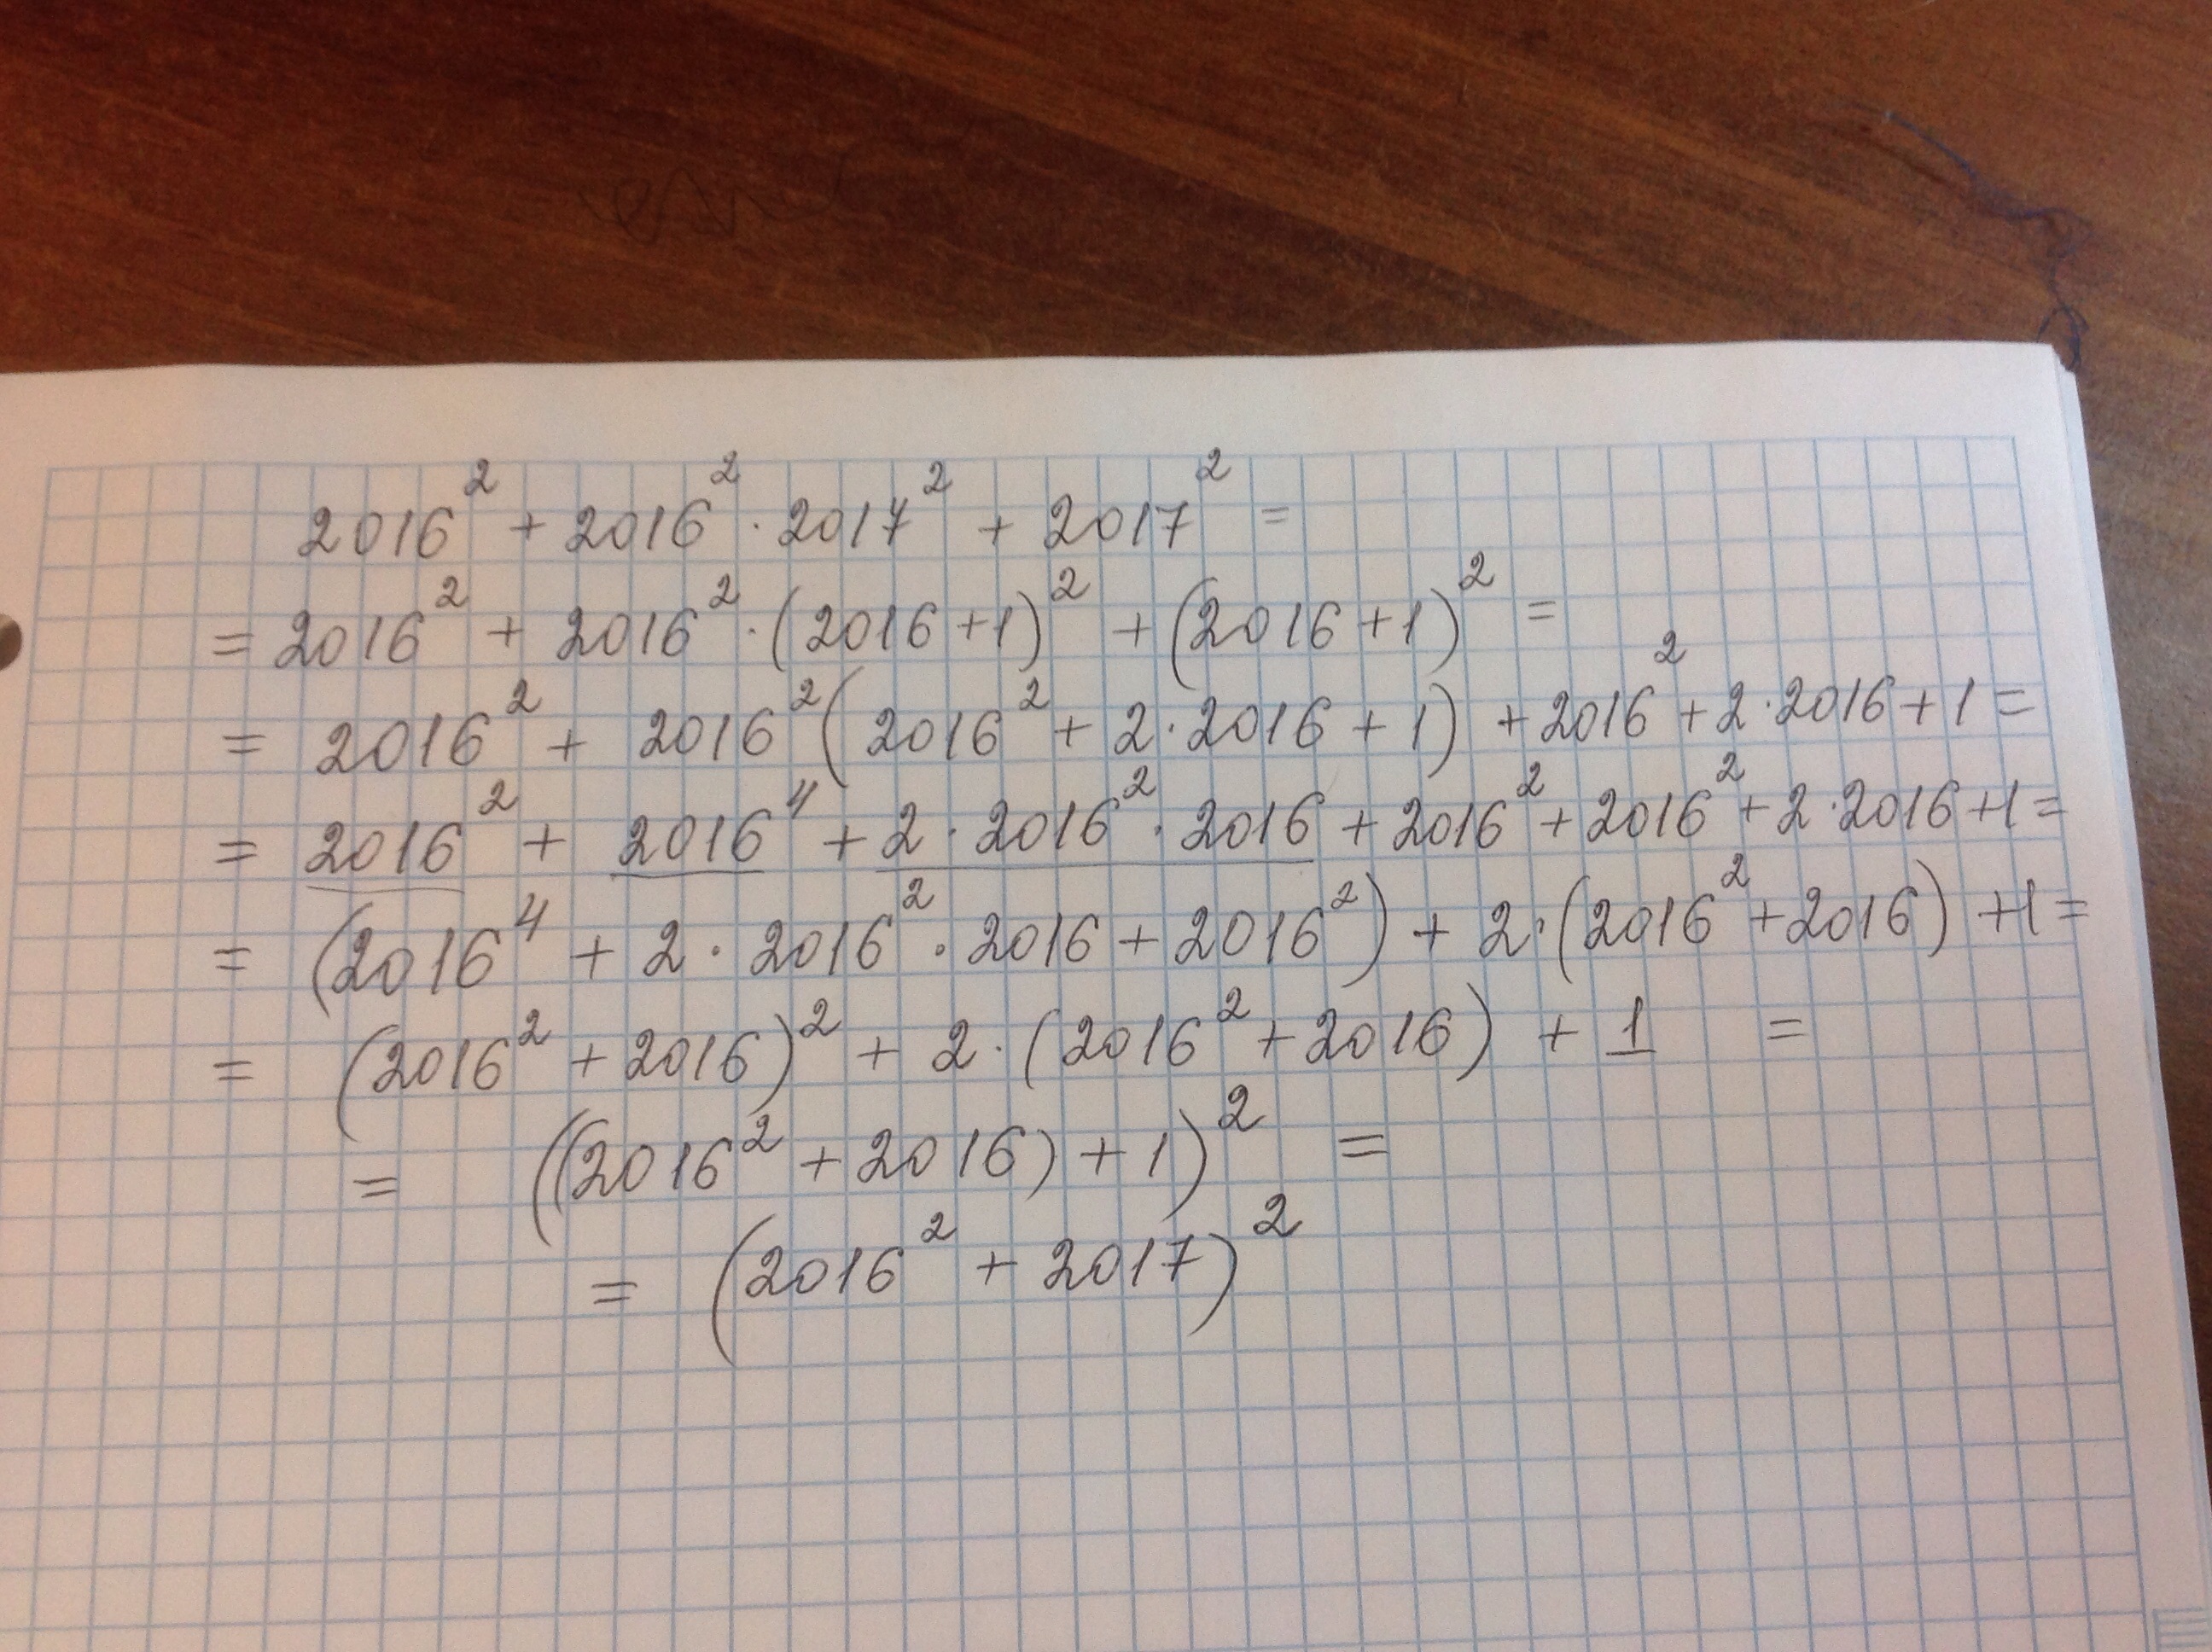 2016² + 2016² · 2017² + 2017² =
= 2016² + 2016² · (2016 + 1)² + (2016 + 1)² =
= 2016² + 2016² (2016² + 2 · 2016 + 1) + 2016² + 2 · 2016 + 1 =
= 2016² + 2016⁴ + 2 · 2016² · 2016 + 2016² + 2016² + 2 · 2016 + 1 =
= (2016⁴ + 2 · 2016² · 2016 + 2016²) + 2 · (2016² + 2016) + 1 =
= (2016² + 2016)² + 2 · (2016² + 2016) + 1 =
= ((2016² + 2016) + 1)² =
= (2016² + 2017)²